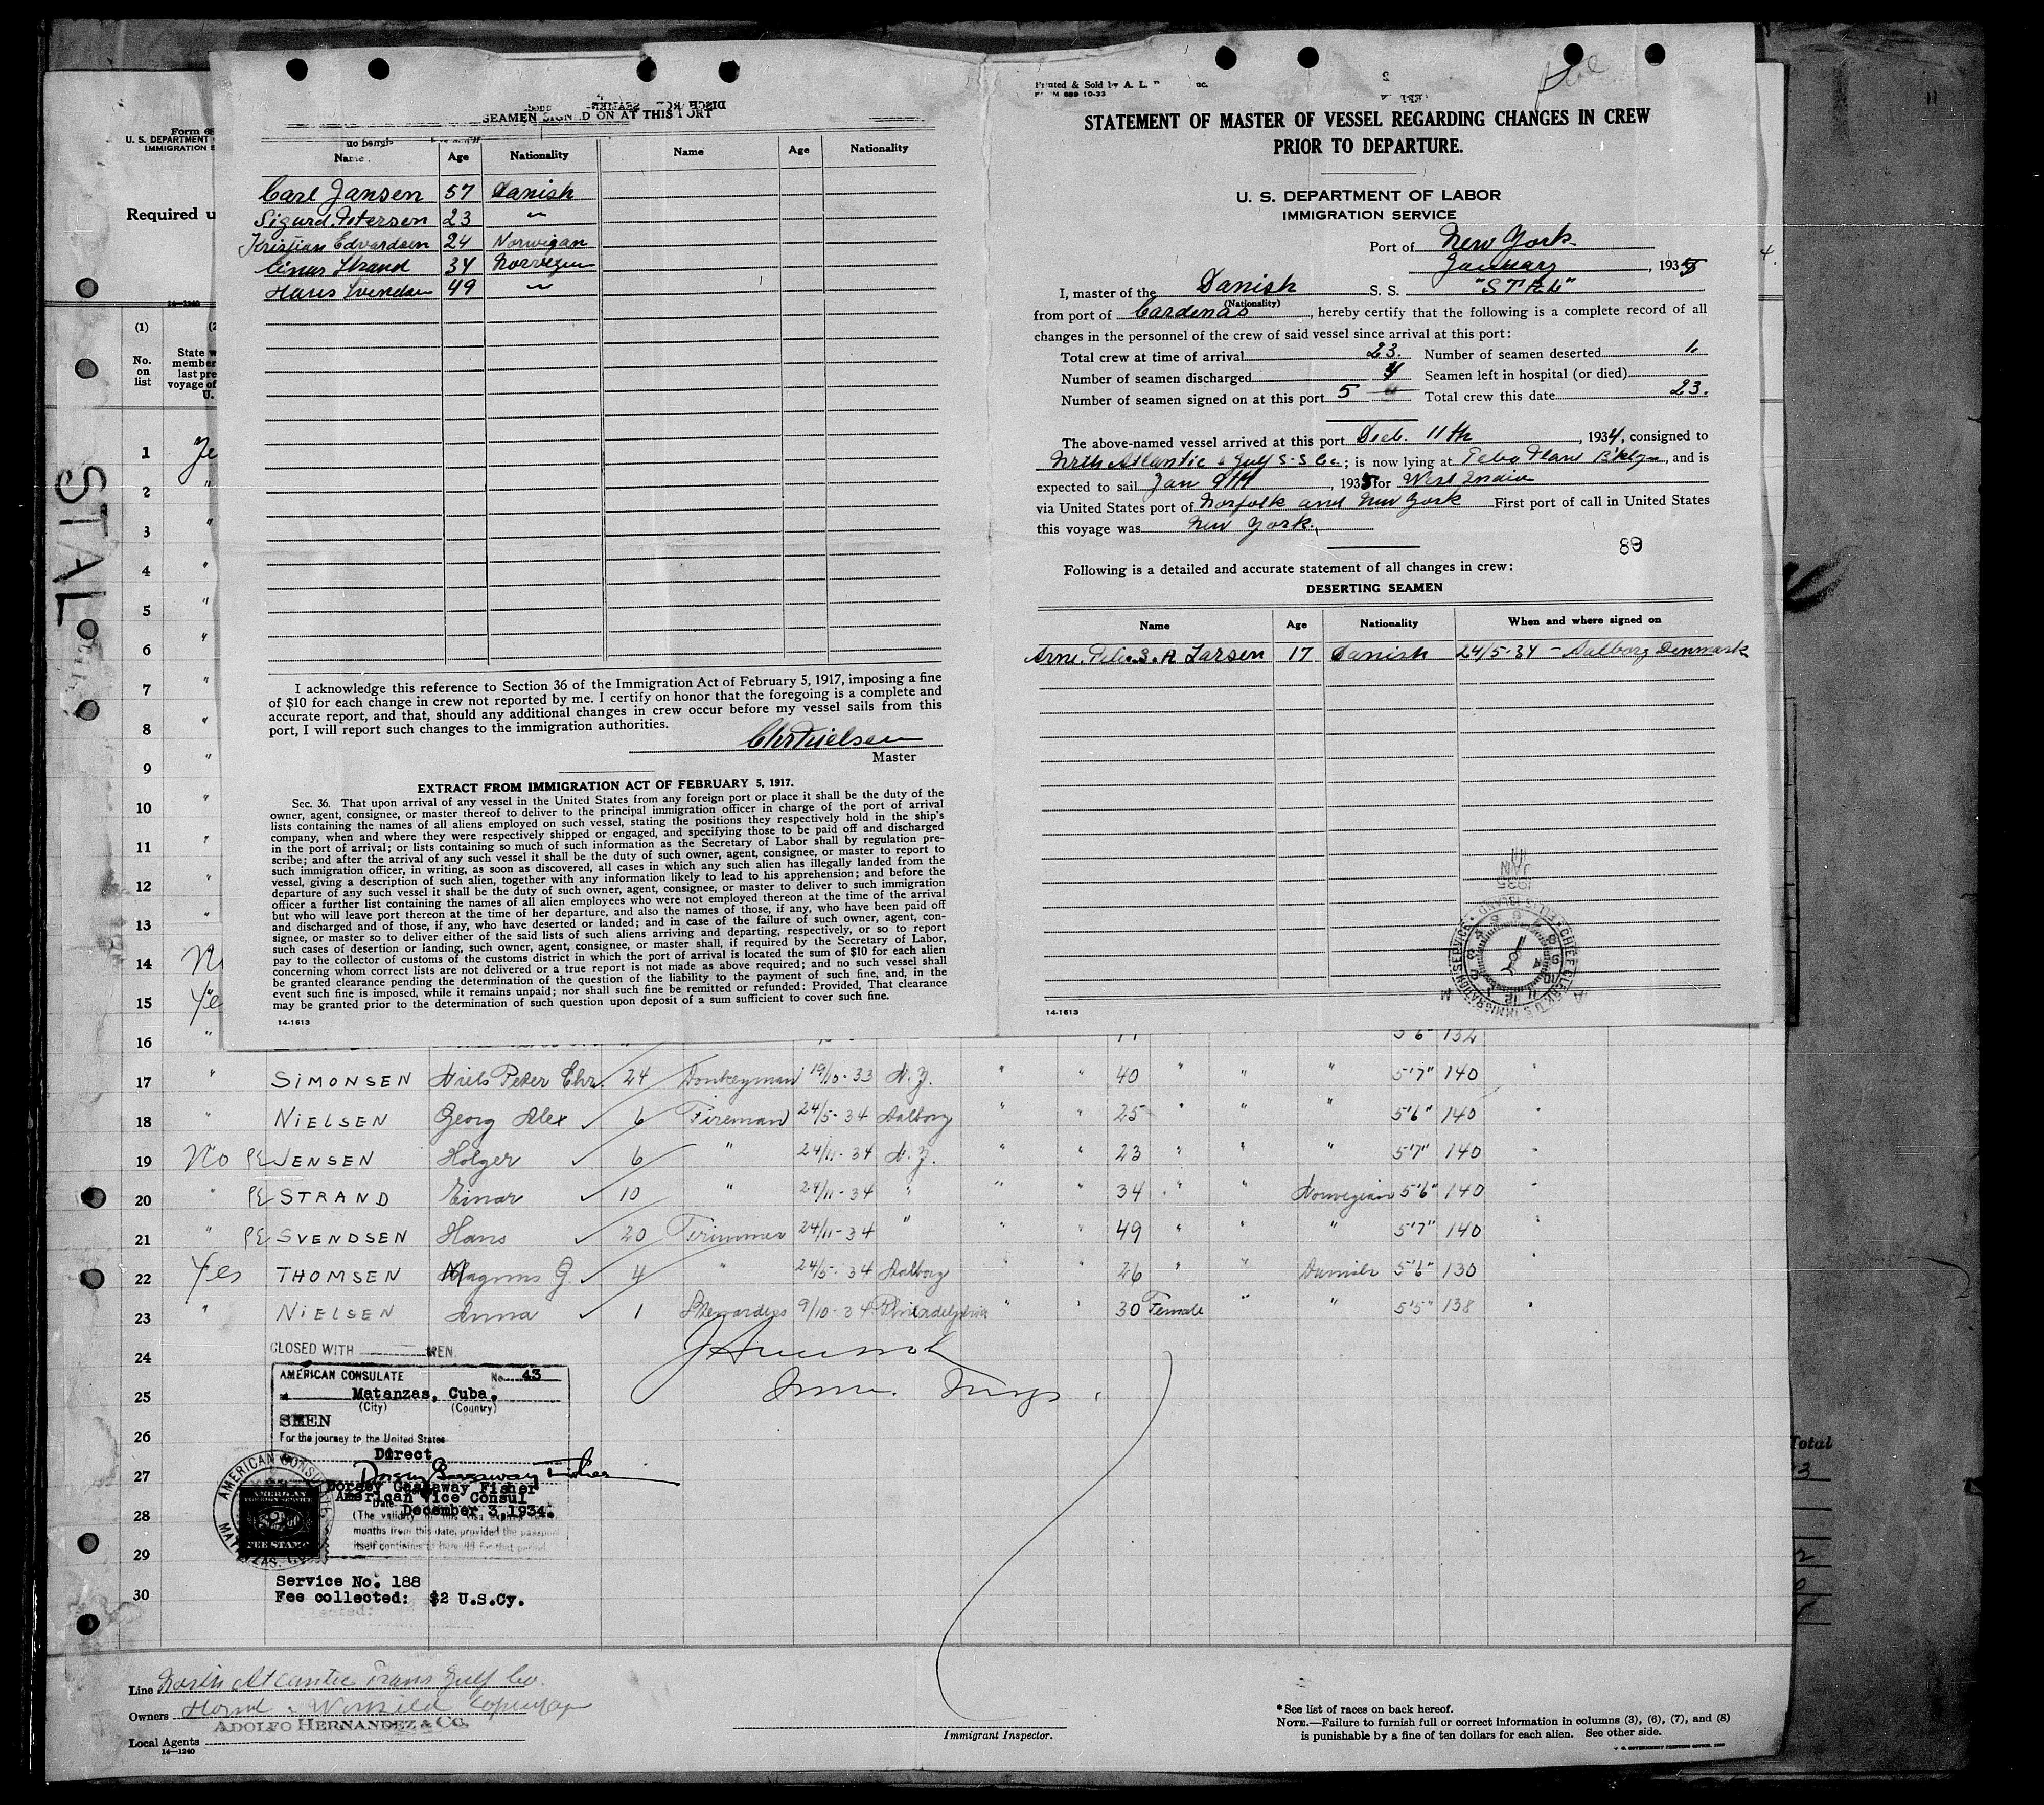 SEAMEN SIGNED ON AT THIS PORT
Name Age Nationality Name Age Nationality
Carl Jansen 57 Danish
Sigurd Petersen 23 "
Kristian Edvardsen 24 Norwigan
Einar Strand 34 Norwegen
Hans Svendsen 49 "
I acknowledge this reference to Section 36 of the Immigration Act of February 5, 1917, imposing a fine
of $10 for each change in crew not reported by me. I certify on honor that the foregoing is a complete and
accurate report, and that, should any additional changes in crew occur before my vessel sails from this
port, I will report such changes to the immigration authorities.
Chr Nielsen
Master
EXTRACT FROM IMMIGRATION ACT OF FEBRUARY 5, 1917.
Sec. 36. That upon arrival of any vessel in the United States from any foreign port or place it shall be the duty of the
owner, agent, consignee, or master thereof to deliver to the principal immigration officer in charge of the port of arrival
lists containing the names of all aliens employed on such vessel, stating the positions they respectively hold in the ship's
company, when and where they were respectively shipped or engaged, and specifying those to be paid off and discharged
in the port of arrival; or lists containing so much of such information as the Secretary of Labor shall by regulation pre-
scribe; and after the arrival of any such vessel it shall be the duty of such owner, agent, consignee, or master to report to
such immigration officer, in writing, as soon as discovered, all cases in which any such alien has illegally landed from the
vessel, giving a description of such alien, together with any information likely to lead to his apprehension; and before the
departure of any such vessel it shall be the duty of such owner, agent, consignee, or master to deliver to such immigration
officer a further list containing the names of all alien employees who were not employed thereon at the time of the arrival
but who will leave port thereon at the time of her departure, and also the names of those, if any, who have been paid off
and discharged and of those, if any, who have deserted or landed; and in case of the failure of such owner, agent, con-
signee, or master so to deliver either of the said lists of such aliens arriving and departing, respectively, or so to report
such cases of desertion or landing, such owner, agent, consignee, or master shall, if required by the Secretary of Labor,
pay to the collector of customs of the customs district in which the port of arrival is located the sum of $10 for each alien
concerning whom correct lists are not delivered or a true report is not made as above required; and no such vessel shall
be granted clearance pending the determination of the question of the liability to the payment of such fine, and, in the
event such fine is imposed, while it remains unpaid; nor shall such fine be remitted or refunded: Provided, That clearance
may be granted prior to the determination of such question upon deposit of a sum sufficient to cover such fine.
14-1613
Printed & Sold by A. L.
FORM 689 10-33
STATEMENT OF MASTER OF VESSEL REGARDING CHANGES IN CREW
PRIOR TO DEPARTURE.
U. S. DEPARTMENT OF LABOR
IMMIGRATION SERVICE
Port of New York
January, 1935
I, master of the Danish S. S. "STAL"
(Nationality)
from port of Cardenas, hereby certify that the following is a complete record of all
changes in the personnel of the crew of said vessel since arrival at this port:
Total crew at time of arrival 23. Number of seamen deserted 1.
Number of seamen discharged 4 Seamen left in hospital (or died)
Number of seamen signed on at this port 5 Total crew this date 23.
The above-named vessel arrived at this port Dec. 11th, 1934, consigned to
North Atlantic & Gulf S-S Co.; is now lying at Bklyn, and is
expected to sail Jan 9th, 1935 for West India
via United States port of Norfolk and New York First port of call in United States
this voyage was New York.
89
Following is a detailed and accurate statement of all changes in crew:
DESERTING SEAMEN
Name Age Nationality When and where signed on
Arne Peter S. A Larsen 17 Danish 24/5-34 - Aalborg Denmark
JAN
1935
14-1613
STAL
Form 68
U. S. DEPARTMENT
IMMIGRATION S
Required u
14-1240
(1)
No.
on
list
State w
member
last pre
voyage of
U.
1 Ye
2 "
3 "
4 "
5 "
6 "
7 "
8 "
9 "
10 "
11 "
12 "
13 "
14 No
15 Yes
16 " 5'6" 132
17 " SIMONSEN Niels Peter Chr. 24 Donkeyman 19/10-33 N.Y. " " 40 " " " 5'7" 140 "
18 " NIELSEN Georg Alex 6 Fireman 24/5-34 Aalborg " " 25 " " " 5'6" 140 "
19 No PE JENSEN Holger 6 " 24/11-34 N.Y. " " 23 " " " 5'7" 140 "
20 " PE STRAND Einar 10 " 24/11-34 " " " 34 " " Norwegian 5'6" 140 "
21 " PE SVENDSEN Hans 20 Trimmer 24/11-34 " " " 49 " " " 5'7" 140 "
22 Yes THOMSEN Magnus G 4 " 24/5-34 Aalborg " " 26 " " Danish 5'6" 130 "
23 " NIELSEN Anna 1 Stewardess 9/10-34 Philadelphia " " 30 Female " " 5'5" 138 "
24
25
26
27
28
29
30
CLOSED WITH MEN.
AMERICAN CONSULATE No. 43
Matanzas, Cuba.
(City) (Country)
SMEN
For the journey to the United States
Direct
Dorsey Gassaway Fisher
Dorsey Gassaway Fisher
American Vice Consul
Date December 3, 1934.
(The validity of this visa expires
months from this date, provided the passport
itself continues to be valid for that period.
AMERICAN CONSULATE MATANZAS, CUBA
AMERICAN
FOREIGN SERVICE
$2.00
FEE STAMP
Service No. 188
Fee collected: $2 U.S.Cy.
Total
Line North Atlantic Trans Gulf Co.
Owners
ADOLFO HERNANDEZ & CO.
Local Agents
14-1240
Immigrant Inspector.
* See list of races on back hereof.
NOTE.—Failure to furnish full or correct information in columns (3), (6), (7), and (8)
is punishable by a fine of ten dollars for each alien. See other side.